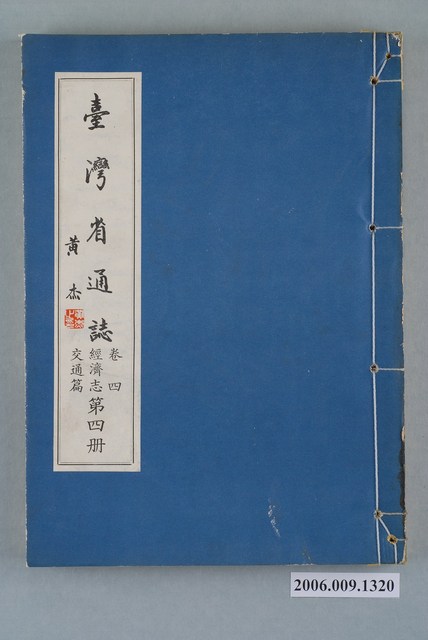 臺灣省通誌
黃杰
卷四
經濟志
交通篇
第四册
2006.009.1320